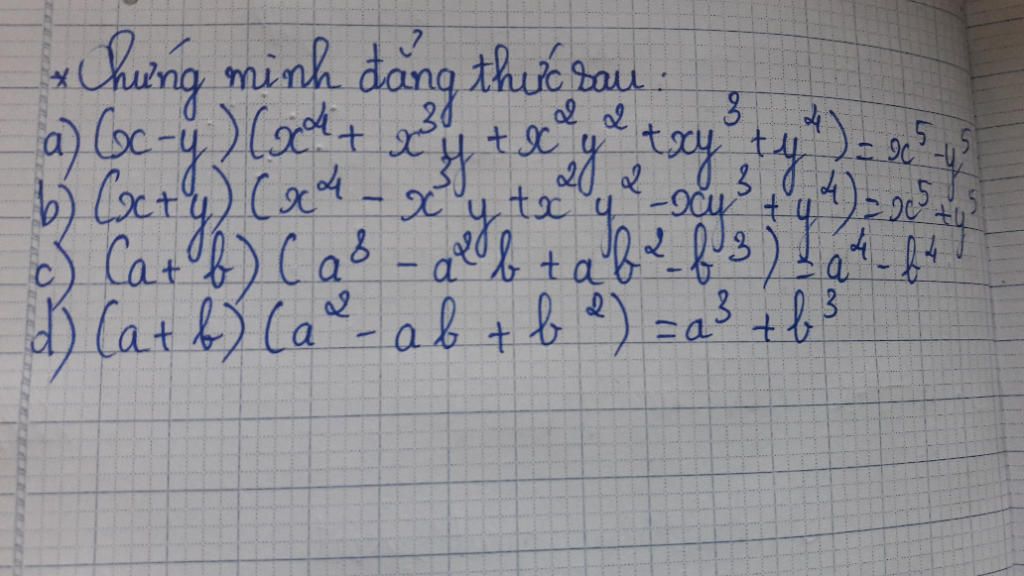 * Chứng minh đẳng thức sau:
a) (x-y)(x⁴ + x³y + x²y² + xy³ + y⁴) = x⁵-y⁵
b) (x+y)(x⁴ - x³y + x²y² - xy³ + y⁴) = x⁵+y⁵
c) (a+b)(a³ - a²b + ab² - b³) = a⁴ - b⁴
d) (a+b)(a² - ab + b²) = a³ + b³